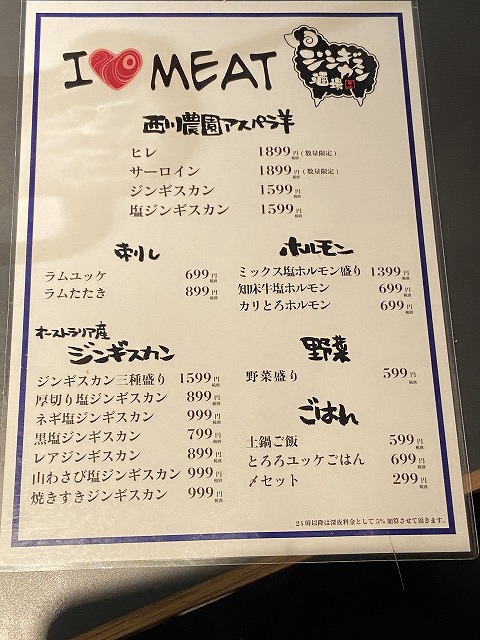 I MEAT
ジンギスカン
酒場
西川農園アスパラ羊
ヒレ 1899円(数量限定) 税別
サーロイン 1899円(数量限定) 税別
ジンギスカン 1599円 税別
塩ジンギスカン 1599円 税別
刺し
ラムユッケ 699円 税別
ラムたたき 899円 税別
ホルモン
ミックス塩ホルモン盛り 1399円 税別
知床牛塩ホルモン 699円 税別
カリとろホルモン 699円 税別
オーストラリア産
ジンギスカン
ジンギスカン三種盛り 1599円 税別
厚切り塩ジンギスカン 899円 税別
ネギ塩ジンギスカン 999円 税別
黒塩ジンギスカン 799円 税別
レアジンギスカン 899円 税別
山わさび塩ジンギスカン 999円 税別
焼きすきジンギスカン 999円 税別
野菜
野菜盛り 599円 税別
ごはん
土鍋ご飯 599円 税別
とろろユッケごはん 699円 税別
〆セット 299円 税別
24時以降は深夜料金として5%加算させて頂きます。